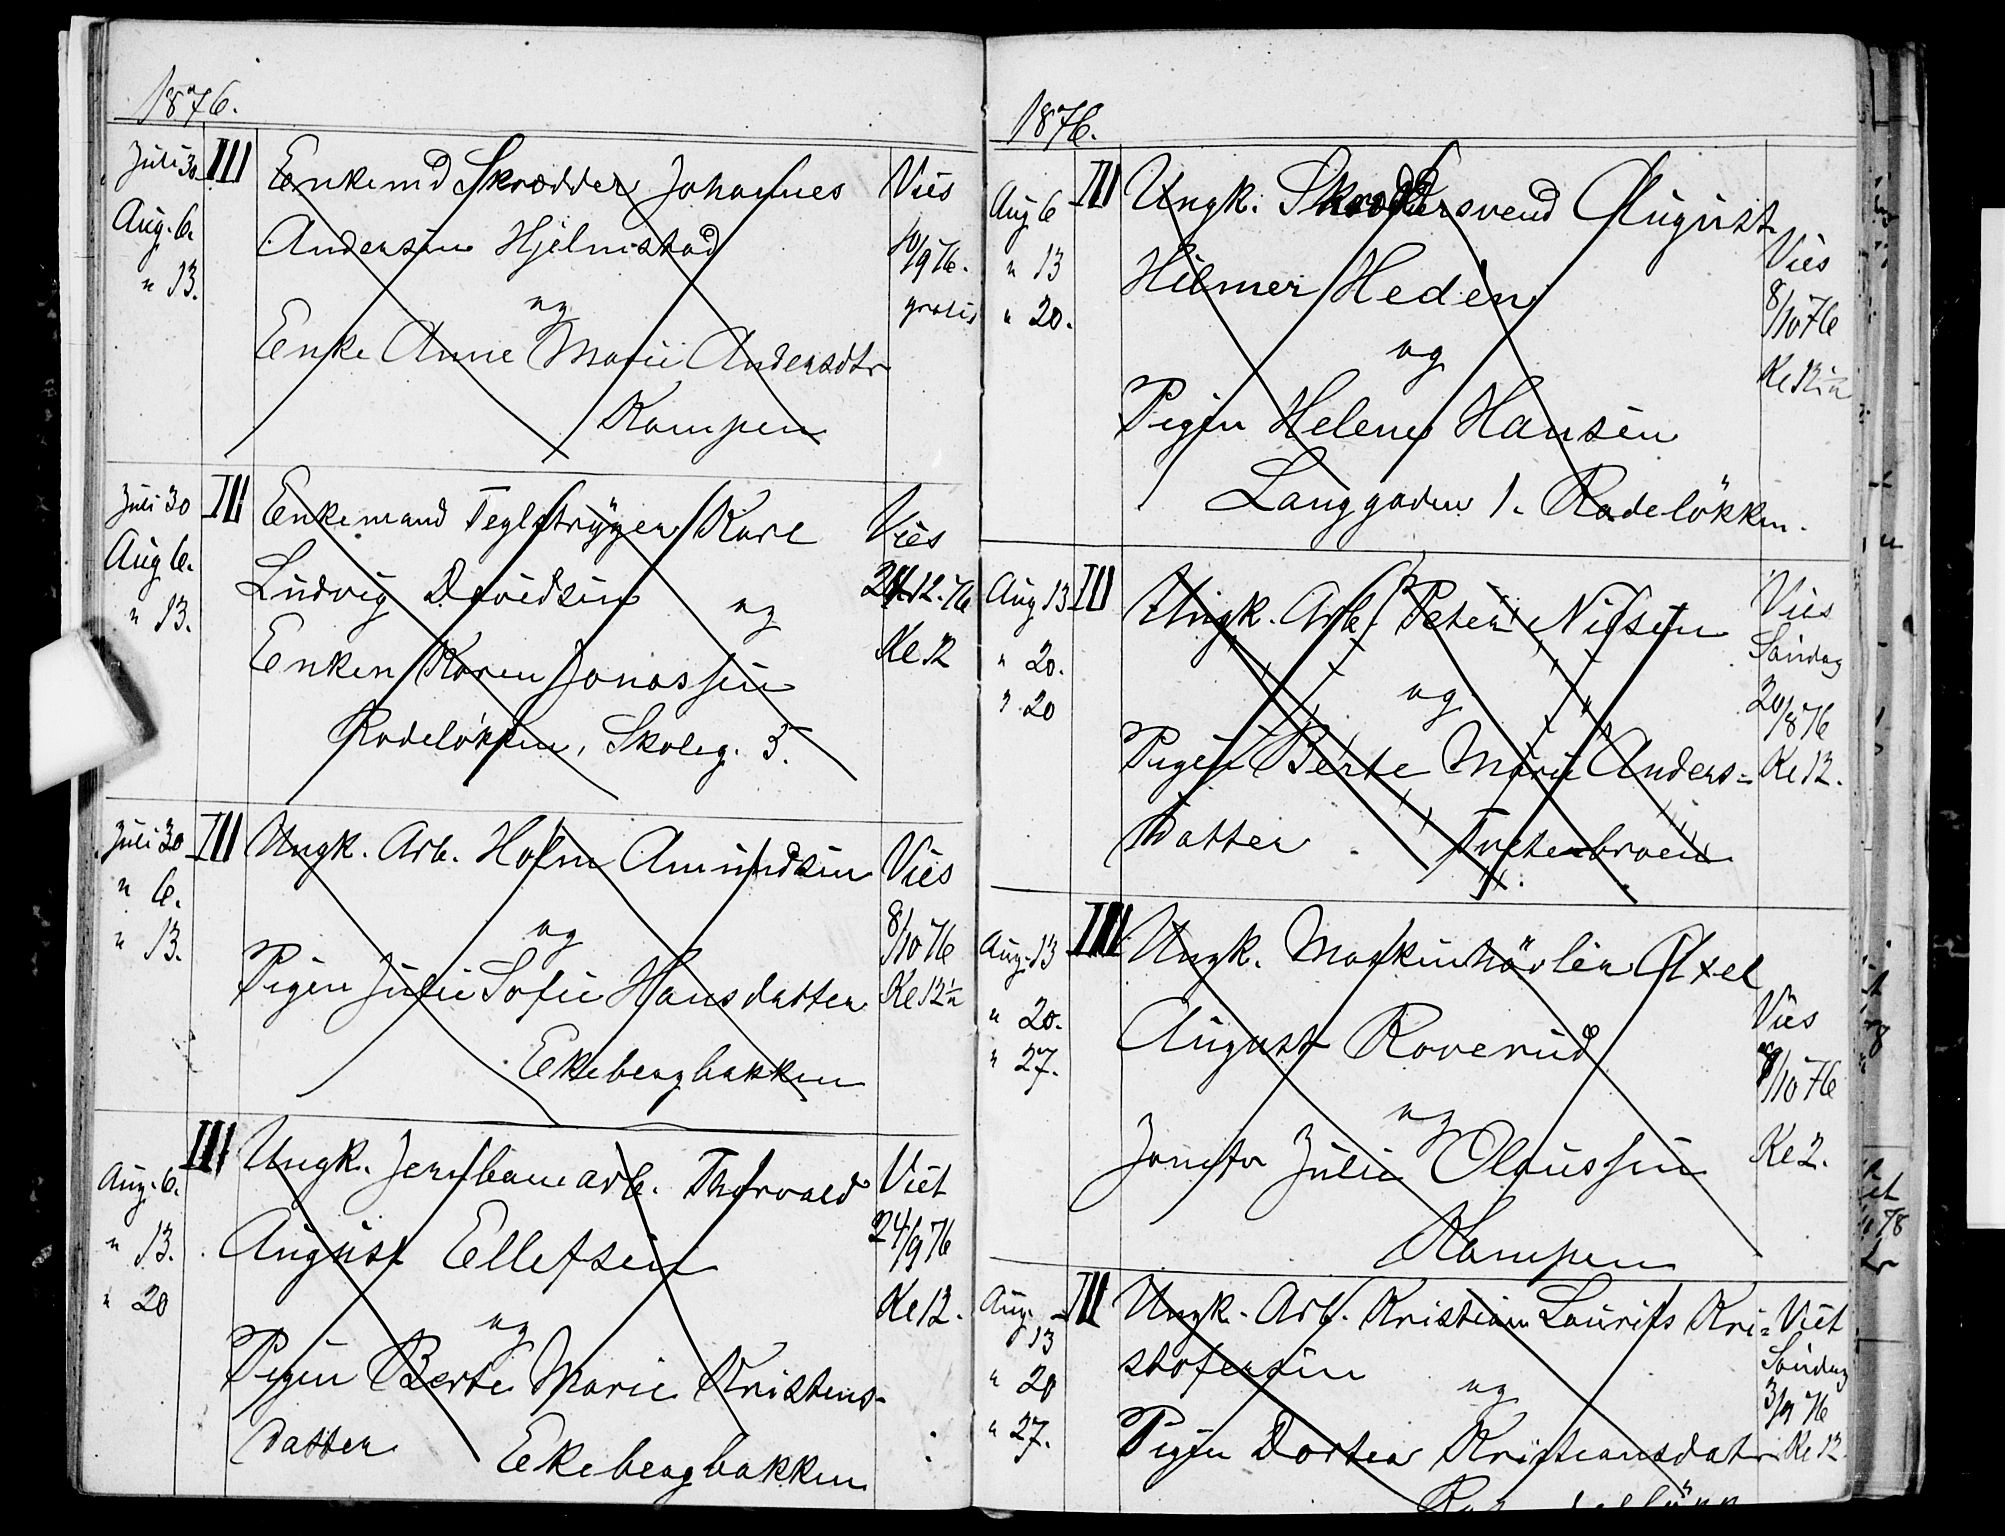 1876.
Juli 30 III Enkemd Skrædder Johannes Viès
Aug. 6. Andersen Hjelmstad 10/9 76.
" 13. og gratis
Enke Anne Marie Andersdtr
Kampen
Juli 30 III Enkemand Teglstryger Karl Viès
Aug 6. Ludvig Davidsen og 24.12.76
" 13. Enken Karen Jonassen Kl 12
Rodeløkken, Skoleg. 5.
Juli 30 III Ungk. Arb. Holm Amundsen Viès
" 6. og 8/10 76
" 13. Pigen Julie Sofie Hansdatter Kl 12½
Ekebergbakken
Aug. 6. III Ungk. Jernbanearb. Thorvald Viet
" 13. August Ellefsen 24/9 76
" 20 og Kl 12.
Pigen Berte Marie Kristens-
datter Ekebergbakken
1876.
Aug 6 III Ungk. Skræddersvend August
" 13 Hilmer Heden Viès
" 20. og 8/10 76
Pigen Helene Hansen Kl 12½
Langgaden 1. Rodeløkken.
Aug 13 III Ungk. Arb. Peter Nilsen Viès
" 20. og Søndag
" 20 Pigen Berte Marie Anders= 20/8 76
datter Kl 12.
Aug. 13 III Ungk. Maskinhøvler Axel
" 20. August Roverud Viès
" 27. og 8/10 76
Jomfr Julie Olaussen Kl 2.
Kampen
Aug. 13 III Ungk. Arb. Kristian Laurits Kri= Viet
stofersen og Søndag
" 20 3/9 76
" 27. Pigen Dortea Kristiansdatr Kl 12